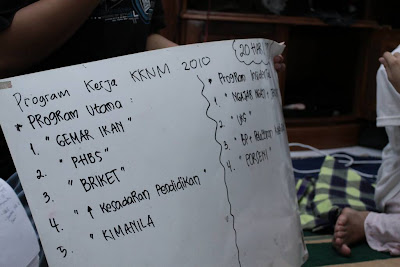 Program Kerja KKNM 2010
• PROGRAM Utama :
1. " GEMAR IKAN "
2. " PHBS "
3. " BRIKET "
4. " ↑ KesadaRan Pendidikan "
5. " KIMANILA
20 HARI
• PROGRAM
1. " NGAJAR NGAJI "
2. " UKS "
3. " BP :
4. " PORSENI "